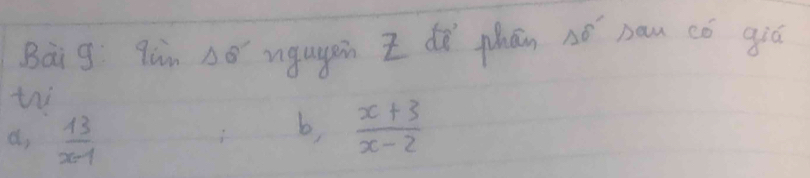 Bài 9: Tìm số nguyên Z để phân số sau có giá
trị
a, 13/x-1 ; b, x+3/x-2